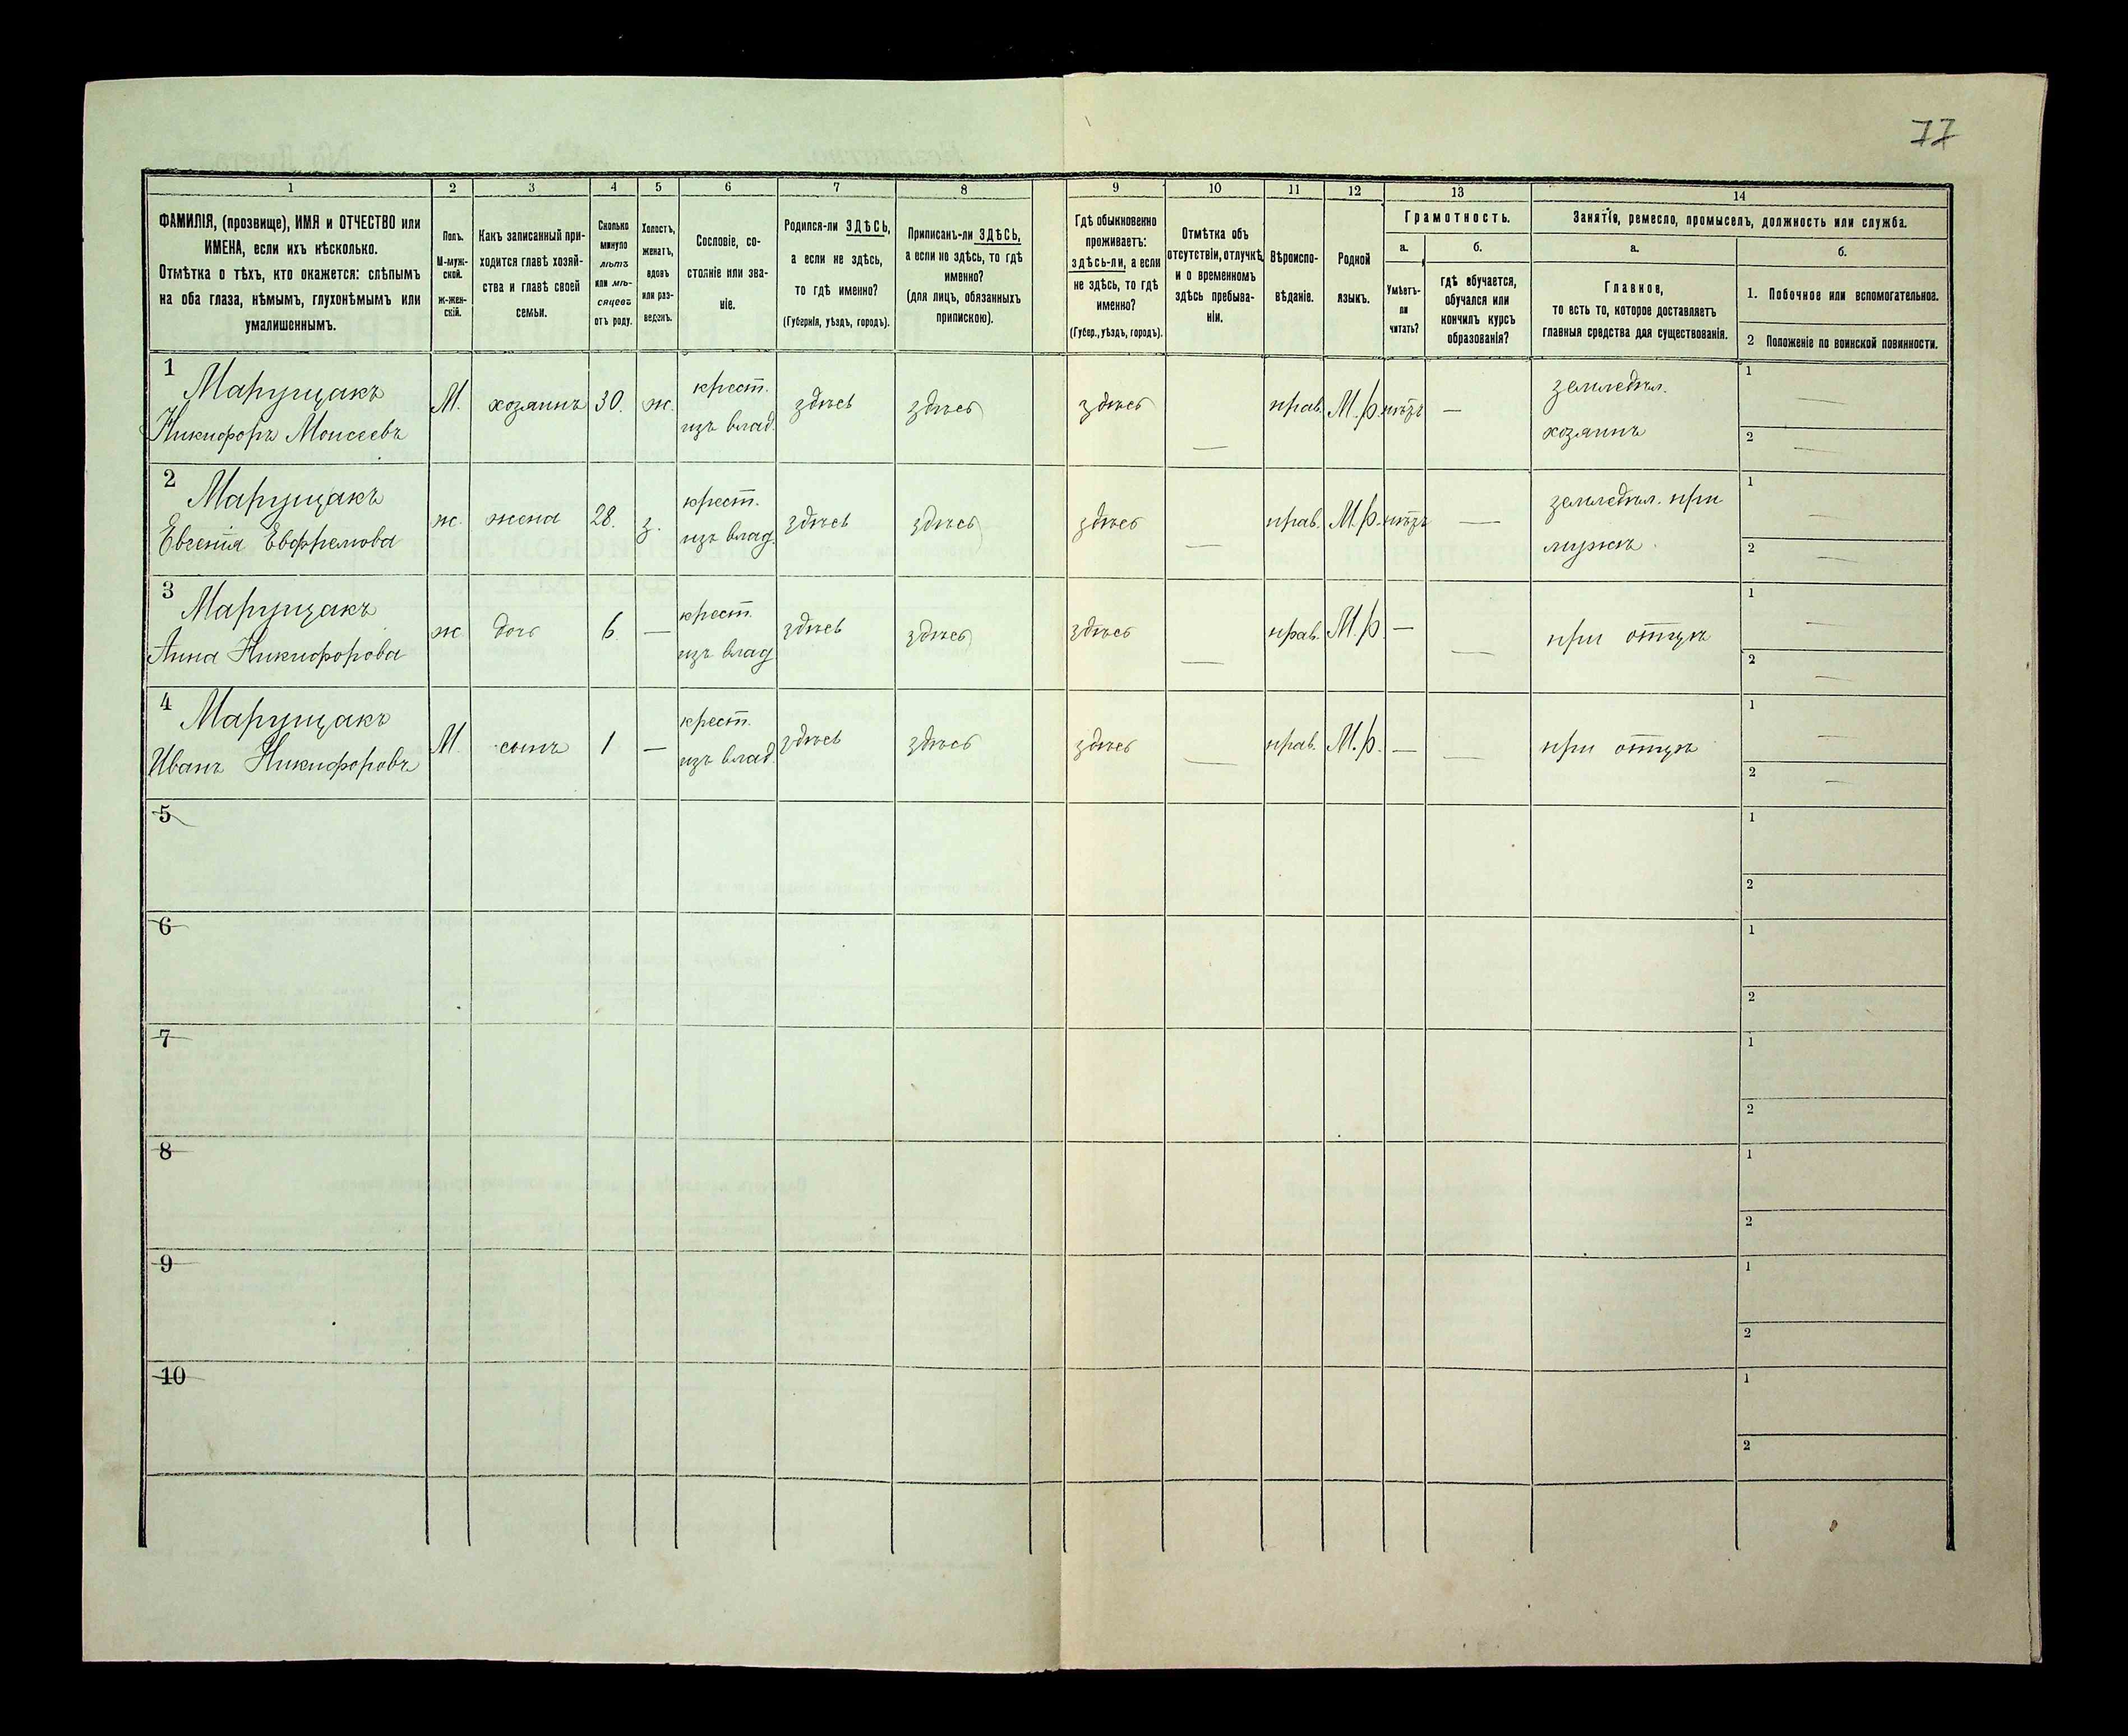 77
1 2 3 4 5 6 7 8 9 10 11 12 13 14
ФАМИЛІЯ, (прозвище), ИМЯ и ОТЧЕСТВО или
ИМЕНА, если ихъ нѣсколько.
Отмѣтка о тѣхъ, кто окажется: слѣпымъ
на оба глаза, нѣмымъ, глухонѣмымъ или
умалишеннымъ.
Полъ.
М-муж-
ской.
Ж-жен-
скій.
Какъ записанный при-
ходится главѣ хозяй-
ства и главѣ своей
семьи.
Сколько
минуло
лѣтъ
или мѣ-
сяцевъ
отъ роду.
Холостъ,
женатъ,
вдовъ
или раз-
веденъ.
Сословіе, со-
стояніе или зва-
ніе.
Родился-ли ЗДѢСЬ,
а если не здѣсь,
то гдѣ именно?
(Губернія, уѣздъ, городъ).
Приписанъ-ли ЗДѢСЬ,
а если не здѣсь, то гдѣ
именно?
(для лицъ, обязанныхъ
припискою).
Гдѣ обыкновенно
проживаетъ:
здѣсь-ли, а если
не здѣсь, то гдѣ
именно?
(Губер., уѣздъ, городъ).
Отмѣтка объ
отсутствіи, отлучкѣ
и о временномъ
здѣсь пребыва-
ніи.
Вѣроиспо-
вѣданіе.
Родной
языкъ.
Грамотность.
а.
Умѣетъ-
ли
читать?
б.
гдѣ обучается,
обучался или
кончилъ курсъ
образованія?
Занятіе, ремесло, промыселъ, должность или служба.
а.
Главное,
то есть то, которое доставляетъ
главныя средства для существованія.
б.
1. Побочное или вспомогательное.
2 Положеніе по воинской повинности.
1
Марущакъ
Никифоръ Моисеевъ
М. хозяинъ 30. ж.
крест.
изъ влад.
здѣсь здѣсь здѣсь — прав. М.р. нѣтъ —
земледѣл.
хозяинъ
1 —
2 —
2
Марущакъ
Евгенія Евфремова
ж. жена 28. з.
крест.
изъ влад.
здѣсь здѣсь здѣсь — прав. М.р. нѣтъ —
земледѣл. при
мужѣ.
1 —
2 —
3
Марущакъ
Анна Никифорова
ж. дочь 6. —
крест.
изъ влад
здѣсь здѣсь здѣсь — прав. М.р — —
при отцѣ
1 —
2 —
4
Марущакъ
Иванъ Никифоровъ
М. сынъ 1 —
крест.
изъ влад.
здѣсь здѣсь здѣсь — прав. М.р. — —
при отцѣ
1 —
2 —
5
1
2
6
1
2
7
1
2
8
1
2
9
1
2
10
1
2